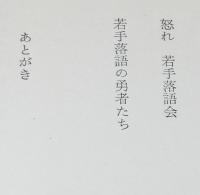 怒れ 若手落語会
若手落語の勇者たち
あとがき